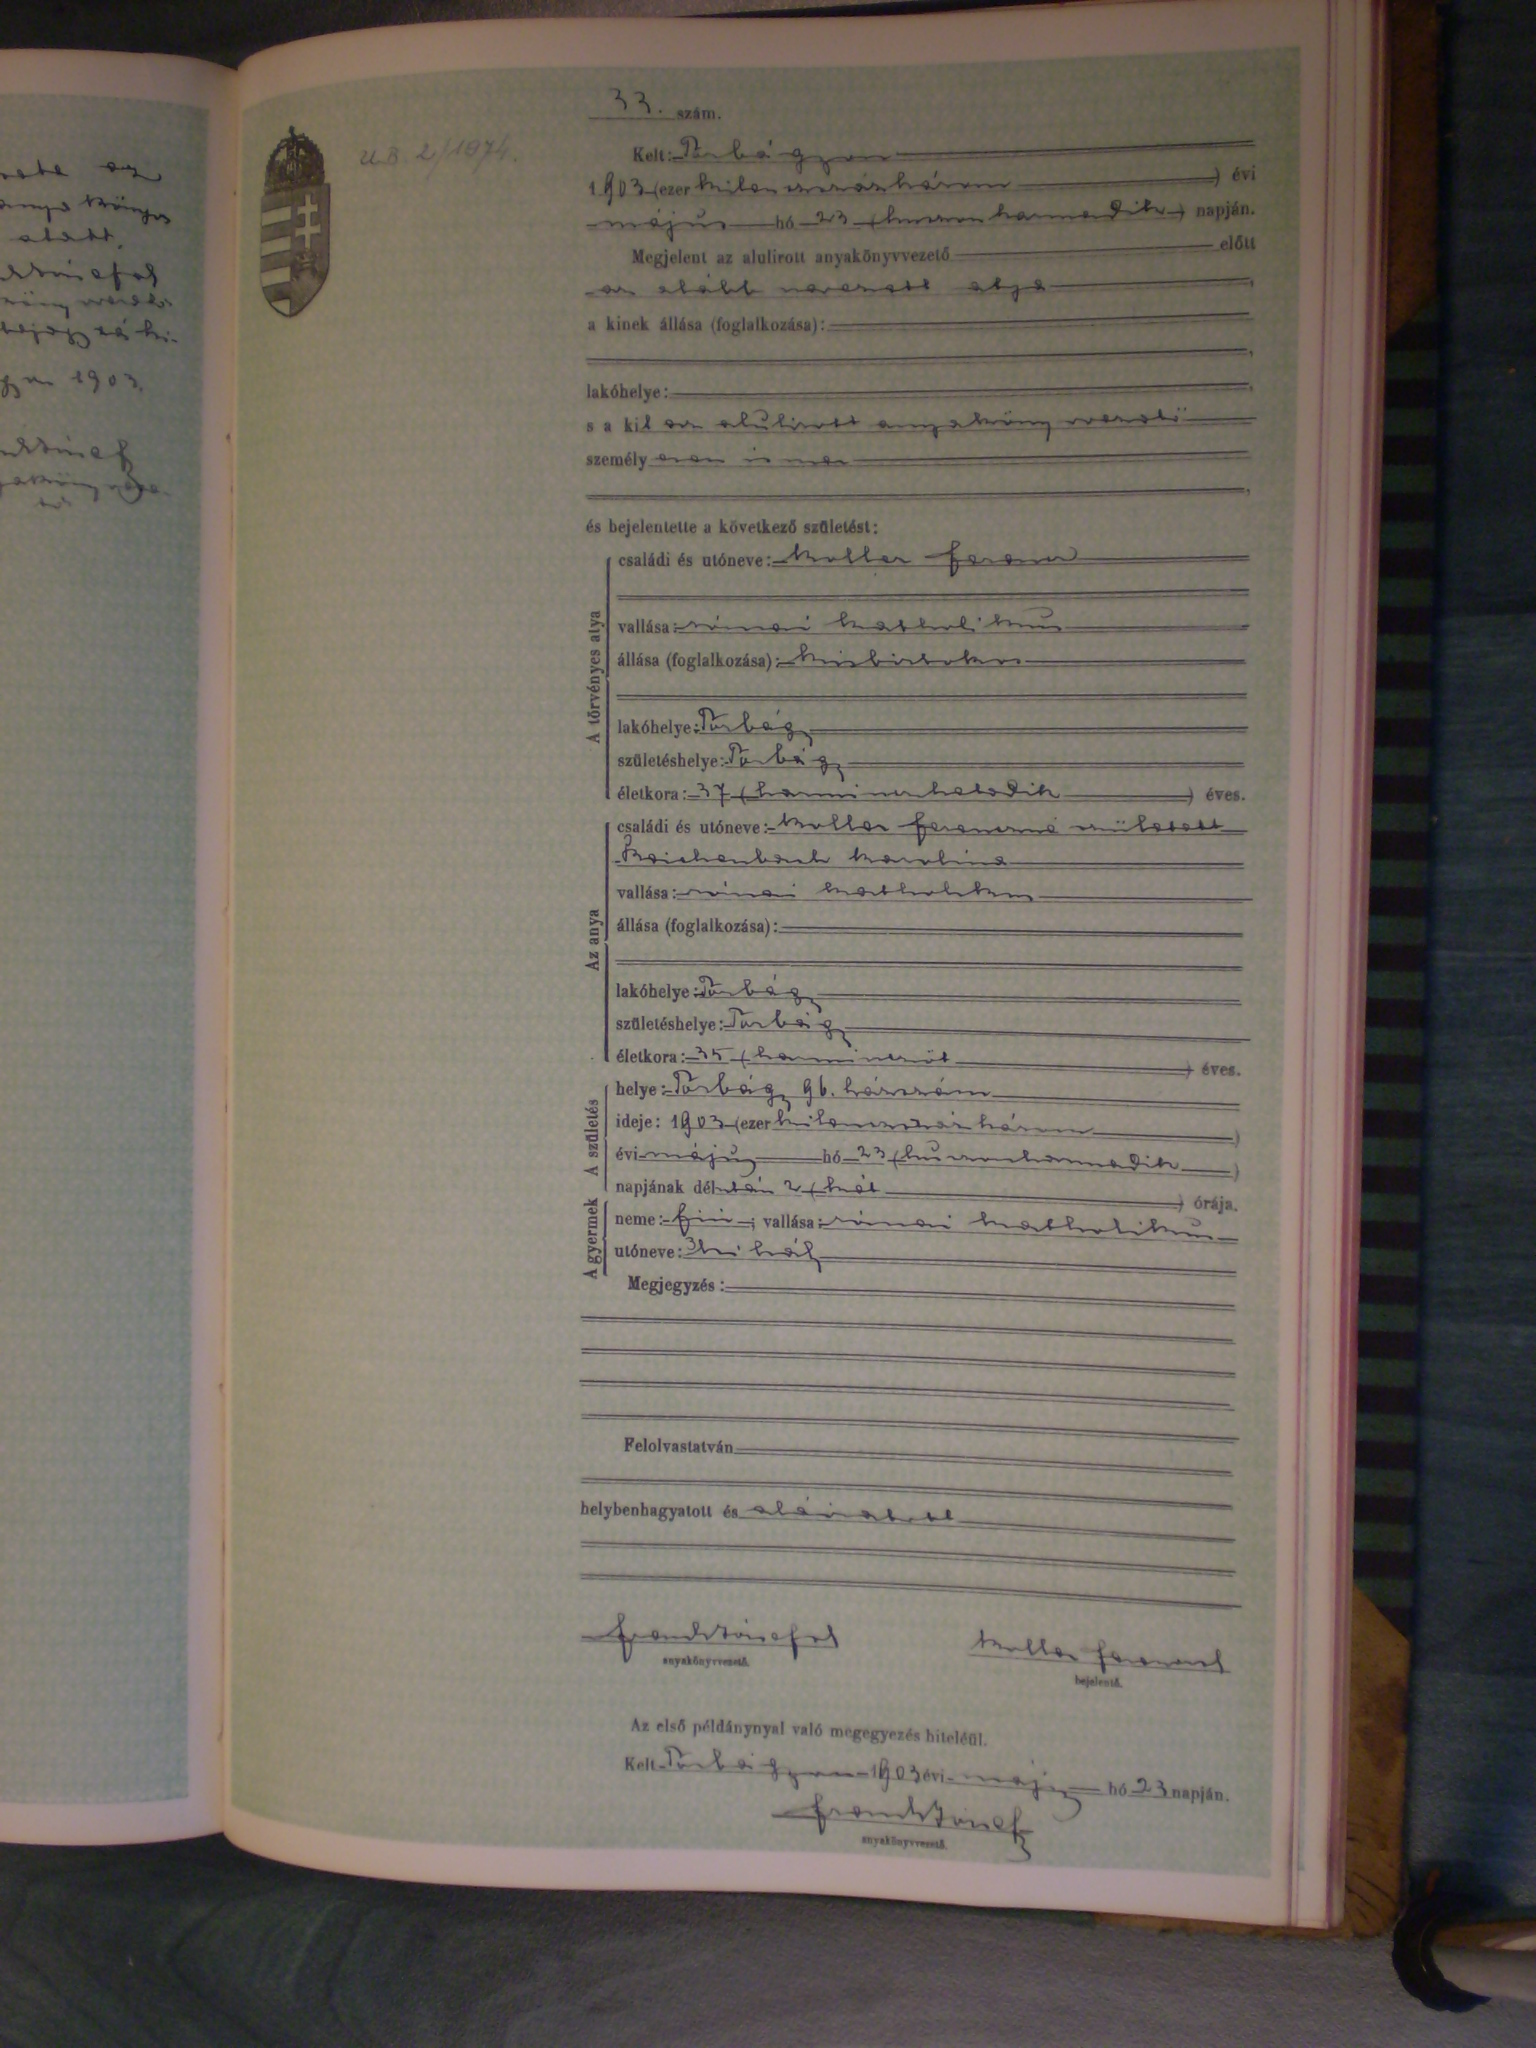 33. szám.
U.B. 2/1974.
Kelt: Törbágyon
1903 (ezer kilenczszázhárom) évi
május hó 23 (huszonharmadik) napján.
Megjelent az alulirott anyakönyvvezető előtt
az alább nevezett atya,
a kinek állása (foglalkozása):
lakóhelye:
s a kit az alulirott anyakönyvvezető
személyesen ismer
és bejelentette a következő születést:
A törvényes atya
családi és utóneve: Koller Ferencz
vallása: római katholikus
állása (foglalkozása): kisbirtokos
lakóhelye: Törbágy
születéshelye: Törbágy
életkora: 37 (harminczhetedik) éves.
Az anya
családi és utóneve: Koller Ferenczné született
Reichenbach Karolina
vallása: római katholikus
állása (foglalkozása):
lakóhelye: Törbágy
születéshelye: Törbágy
életkora: 35 (harminczöt) éves.
A születés
helye: Törbágy 96. házszám
ideje: 1903 (ezer kilenczszázhárom)
évi május hó 23 (huszonharmadik)
napjának délután 2 (két) órája.
A gyermek
neme: fiú; vallása: római katholikus
utóneve: Mihály
Megjegyzés:
Felolvastatván
helybenhagyatott és aláiratott
anyakönyvvezető.
Koller Ferencz
bejelentő.
Az első példánynyal való megegyezés hiteléül.
Kelt Törbágyon 1903 évi május hó 23 napján.
anyakönyvvezető.
alatt.
1903.